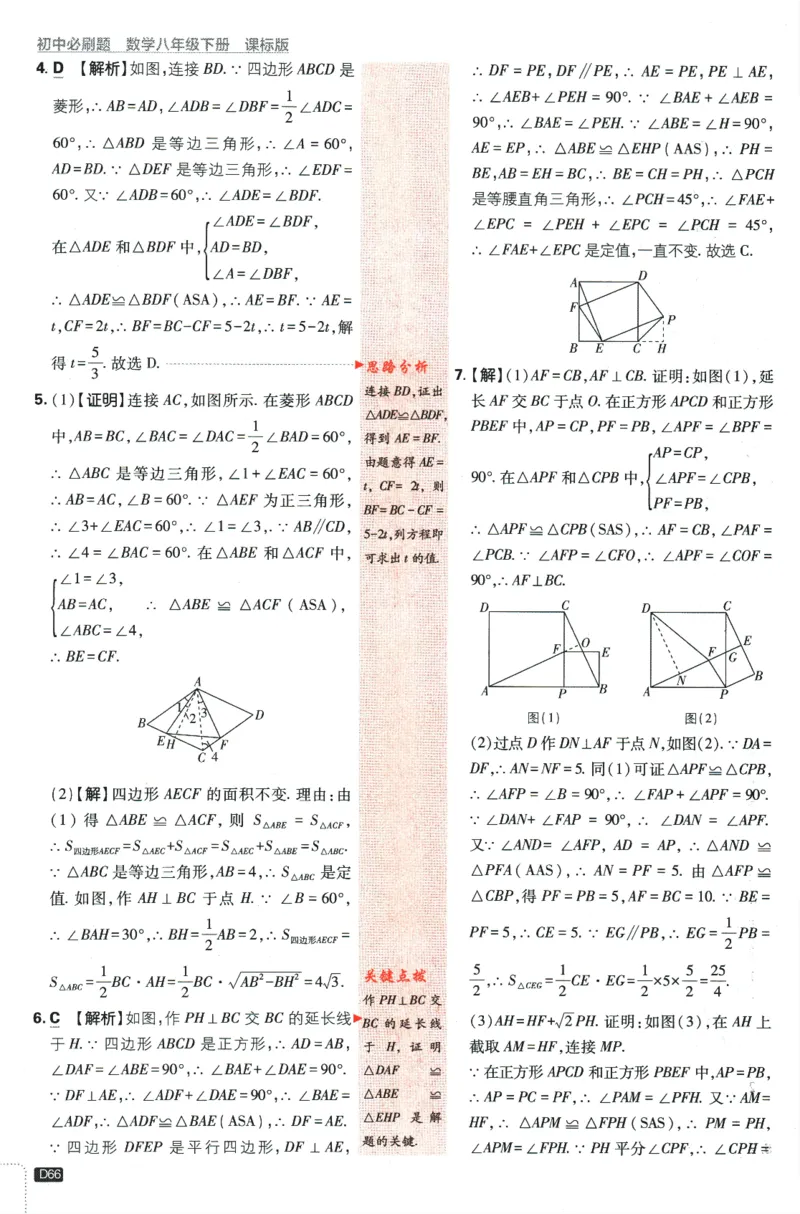 初中必刷题 数学八年级下册 课标版
4. D 【解析】如图,连接 BD.∵ 四边形 ABCD 是
菱形,∴ AB=AD,∠ADB=∠DBF=1/2∠ADC=
60°,∴ △ABD 是等边三角形,∴ ∠A=60°,
AD=BD.∵ △DEF 是等边三角形,∴ ∠EDF=
60°.又∵ ∠ADB=60°,∴ ∠ADE=∠BDF.
在△ADE 和△BDF 中,{∠ADE=∠BDF,
AD=BD,
∠A=∠DBF,
∴ △ADE≌△BDF(ASA),∴ AE=BF.∵ AE=
t,CF=2t,∴ BF=BC-CF=5-2t,∴ t=5-2t,解
得 t=5/3.故选 D.
5. (1)【证明】连接 AC,如图所示.在菱形 ABCD
中,AB=BC,∠BAC=∠DAC=1/2∠BAD=60°,
∴ △ABC 是等边三角形,∠1+∠EAC=60°,
∴ AB=AC,∠B=60°.∵ △AEF 为正三角形,
∴ ∠3+∠EAC=60°,∴ ∠1=∠3,.∵ AB∥CD,
∴ ∠4=∠BAC=60°.在△ABE 和△ACF 中,
{∠1=∠3,
AB=AC, ∴ △ABE≌△ACF(ASA),
∠ABC=∠4,
∴ BE=CF.
A
1 2 3
B D
E H F
C 4
(2)【解】四边形 AECF 的面积不变.理由:由
(1) 得 △ABE≌△ACF,则 S△ABE=S△ACF,
∴ S四边形AECF=S△AEC+S△ACF=S△AEC+S△ABE=S△ABC.
∵ △ABC 是等边三角形,AB=4,∴ S△ABC 是定
值.如图,作 AH⊥BC 于点 H.∵ ∠B=60°,
∴ ∠BAH=30°,∴ BH=1/2AB=2,∴ S四边形AECF=
S△ABC=1/2BC·AH=1/2BC·√(AB²-BH²)=4√3.
6. C 【解析】如图,作 PH⊥BC 交 BC 的延长线
于 H.∵ 四边形 ABCD 是正方形,∴ AD=AB,
∠DAF=∠ABE=90°,∴ ∠BAE+∠DAE=90°.
∵ DF⊥AE,∴ ∠ADF+∠DAE=90°,∴ ∠BAE=
∠ADF,∴ △ADF≌△BAE(ASA),∴ DF=AE.
∵ 四边形 DFEP 是平行四边形,DF⊥AE,
D66
思路分析
连接 BD,证出
△ADE≌△BDF,
得到 AE=BF.
由题意得 AE=
t,CF=2t,则
BF=BC-CF=
5-2t,列方程即
可求出 t 的值.
关键点拨
作 PH⊥BC 交
BC 的延长线
于 H,证明
△DAF≌
△ABE≌
△EHP 是解
题的关键.
∴ DF=PE,DF∥PE,∴ AE=PE,PE⊥AE,
∴ ∠AEB+∠PEH=90°.∵ ∠BAE+∠AEB=
90°,∴ ∠BAE=∠PEH.∵ ∠ABE=∠H=90°,
AE=EP,∴ △ABE≌△EHP(AAS),∴ PH=
BE,AB=EH=BC,∴ BE=CH=PH,∴ △PCH
是等腰直角三角形,∴ ∠PCH=45°,∴ ∠FAE+
∠EPC=∠PEH+∠EPC=∠PCH=45°,
∴ ∠FAE+∠EPC 是定值,一直不变.故选 C.
A D
F P
B E C H
7. 【解】(1)AF=CB,AF⊥CB.证明:如图(1),延
长 AF 交 BC 于点 O.在正方形 APCD 和正方形
PBEF 中,AP=CP,PF=PB,∠APF=∠BPF=
90°.在△APF 和△CPB 中,{AP=CP,
∠APF=∠CPB,
PF=PB,
∴ △APF≌△CPB(SAS),∴ AF=CB,∠PAF=
∠PCB.∵ ∠AFP=∠CFO,∴ ∠APF=∠COF=
90°,∴ AF⊥BC.
D C D C
F O E F G E
A P B A N P B
图(1) 图(2)
(2)过点 D 作 DN⊥AF 于点 N,如图(2).∵ DA=
DF,∴ AN=NF=5.同(1)可证△APF≌△CPB,
∴ ∠AFP=∠B=90°,∴ ∠FAP+∠APF=90°.
∵ ∠DAN+∠FAP=90°,∴ ∠DAN=∠APF.
又∵ ∠AND=∠AFP,AD=AP,∴ △AND≌
△PFA(AAS),∴ AN=PF=5.由 △AFP≌
△CBP,得 PF=PB=5,AF=BC=10.∵ BE=
PF=5,∴ CE=5.∵ EG∥PB,∴ EG=1/2PB=
5/2,∴ S△CEG=1/2CE·EG=1/2×5×5/2=25/4.
(3)AH=HF+√2PH.证明:如图(3),在 AH 上
截取 AM=HF,连接 MP.
∵ 在正方形 APCD 和正方形 PBEF 中,AP=PB,
∴ AP=PC=PF,∴ ∠PAM=∠PFH.又∵ AM=
HF,∴ △APM≌△FPH(SAS),∴ PM=PH,
∠APM=∠FPH.∵ PH 平分∠CPF,∴ ∠CPH=